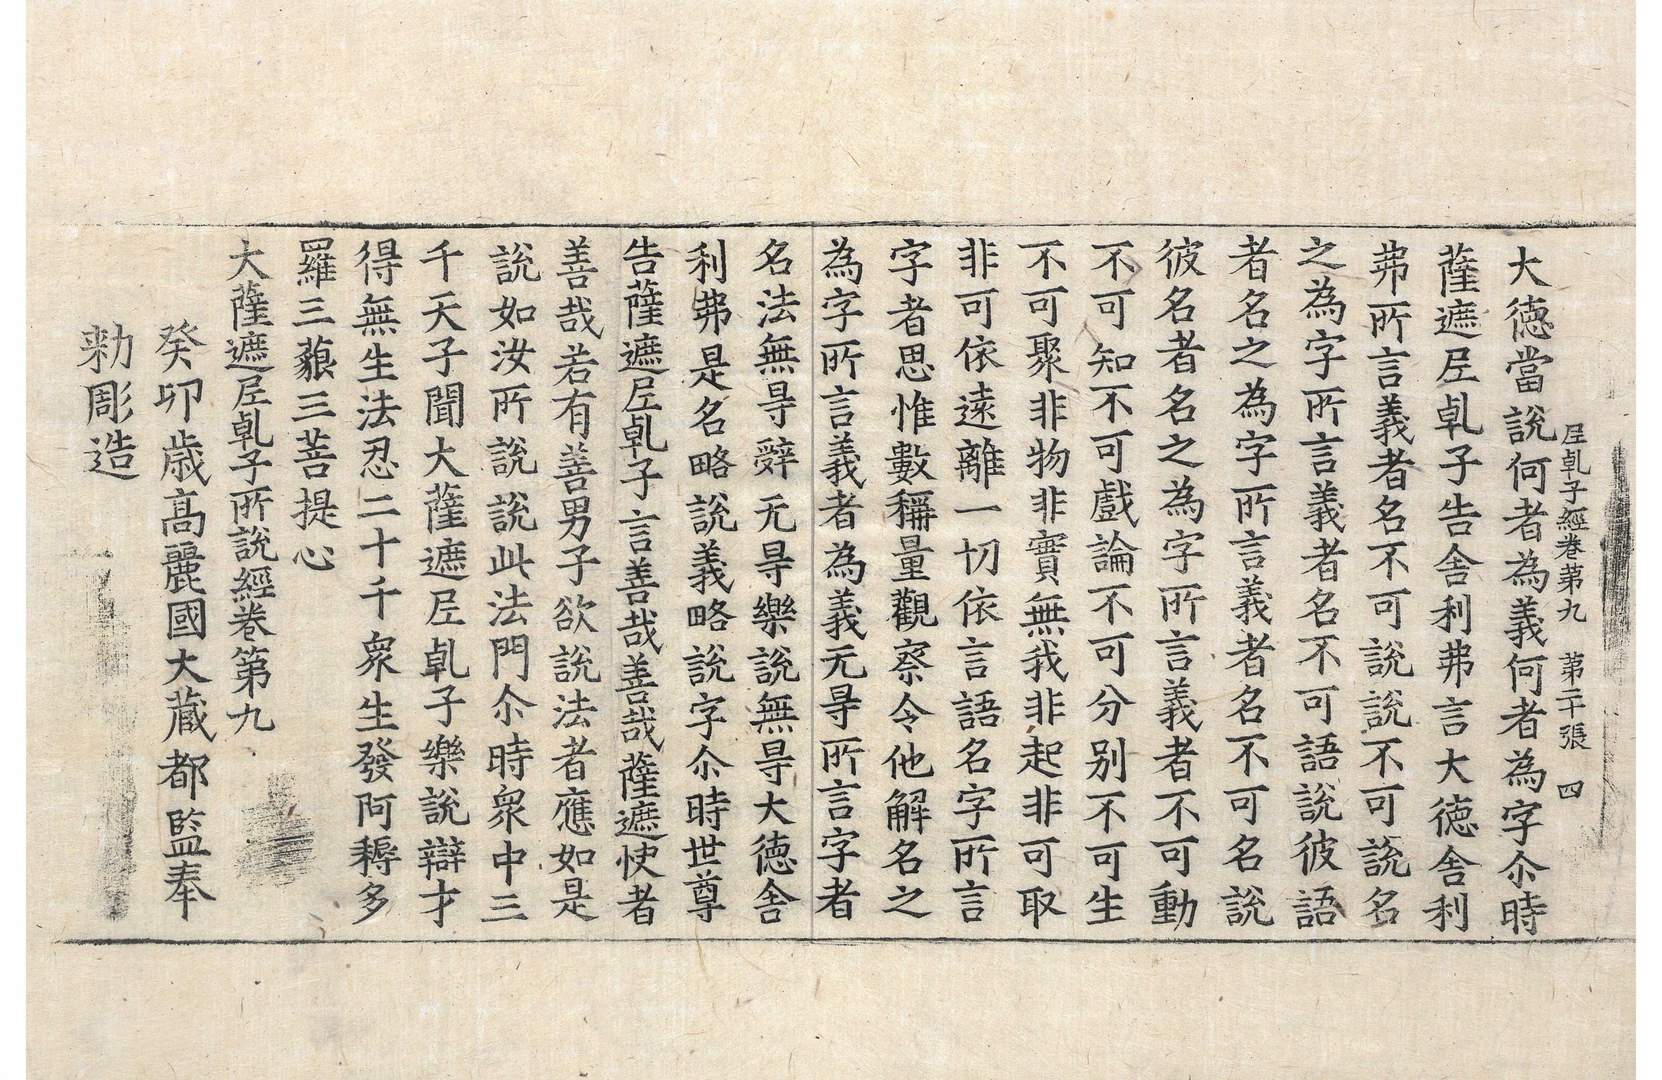 𡰱乹子經卷苐九　苐二十張　四
大德當說何者為義何者為字尒時
薩遮𡰱乹子告舍利弗言大德舍利
弗所言義者名不可說說不可說名
之為字所言義者名不可語說彼語
者名之為字所言義者名不可名說
彼名者名之為字所言義者不可動
不可知不可戲論不可分别不可生
不可聚非物非實無我非起非可取
非可依遠離一切依言語名字所言
字者思惟數稱量觀察令他解名之
為字所言義者為義无㝵所言字者
名法無㝵辝无㝵樂說無㝵大德舍
利弗是名略說義略說字尒時世尊
告薩遮𡰱乹子言善哉善哉薩遮快者
善哉若有善男子欲說法者應如是
說如汝所說說此法門尒時衆中三
千天子聞大薩遮𡰱乹子樂說辯才
得無生法忍二十千衆生發阿耨多
羅三藐三菩提心
大薩遮𡰱乹子所說經卷第九
癸卯歲高麗國大藏都監奉
勑彫造